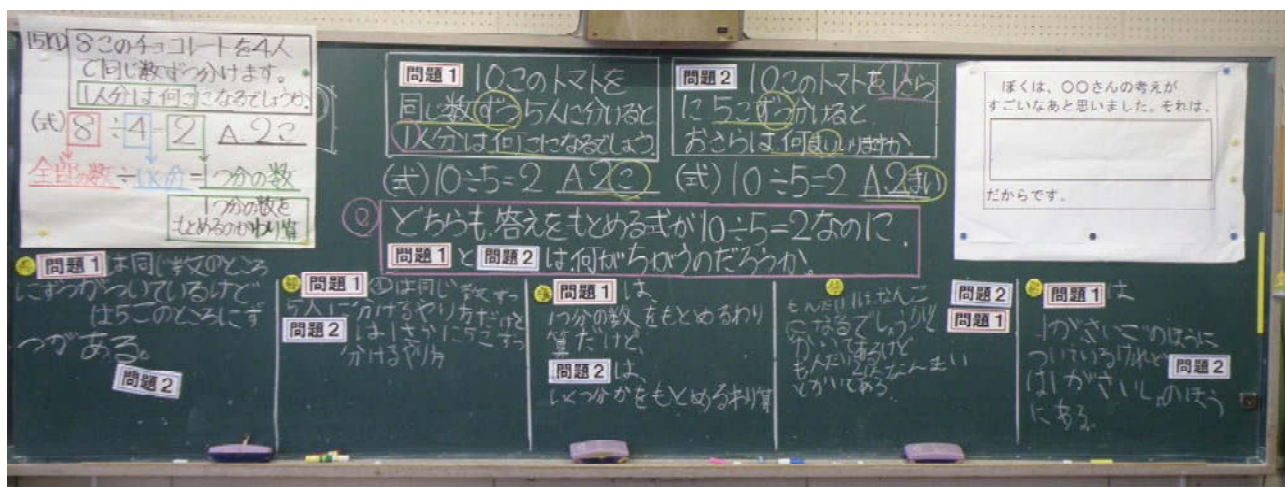 8このチョコレートを4人
で同じ数ずつ分けます。
1人分は何こになるでしょうか。
(式) 8÷4=2 A 2こ
全部の数÷人分=1つ分の数
1つ分の数を
もとめるのがわり算
問題1 10このトマトを
同じ数ずつ5人に分けると
1人分は何こになるでしょう。
(式) 10÷5=2 A2こ
問題2 10このトマトを1さら
に5こずつ分けると
おさらは何まいいりますか。
(式) 10÷5=2 A2まい
どちらも、答えをもとめる式が10÷5=2なのに、
問題1 と 問題2 は何がちがうのだろうか。
ぼくは、〇〇さんの考えが
すごいなあと思いました。それは、
だからです。
問題1 は同じ数のところ
にずつがついているけど
は5このところにず
つがある。
問題2
問題1 は同じ数ずつ
5人に分けるやり方だけど
問題2 は1さらに5こずつ
分けるやり方
問題1 は、
1つ分の数をもとめるわり
算だけど、
問題2 は、
いくつ分かをもとめるわり算
もんだい1はなんこ
になるでしょうかと
かいてあるけど
もんだい2はなんまい
とかいてある。
問題2
問題1
問題1 は
1がさいごのほうに
ついているけれど 問題2
は1がさいしょのほう
にある。